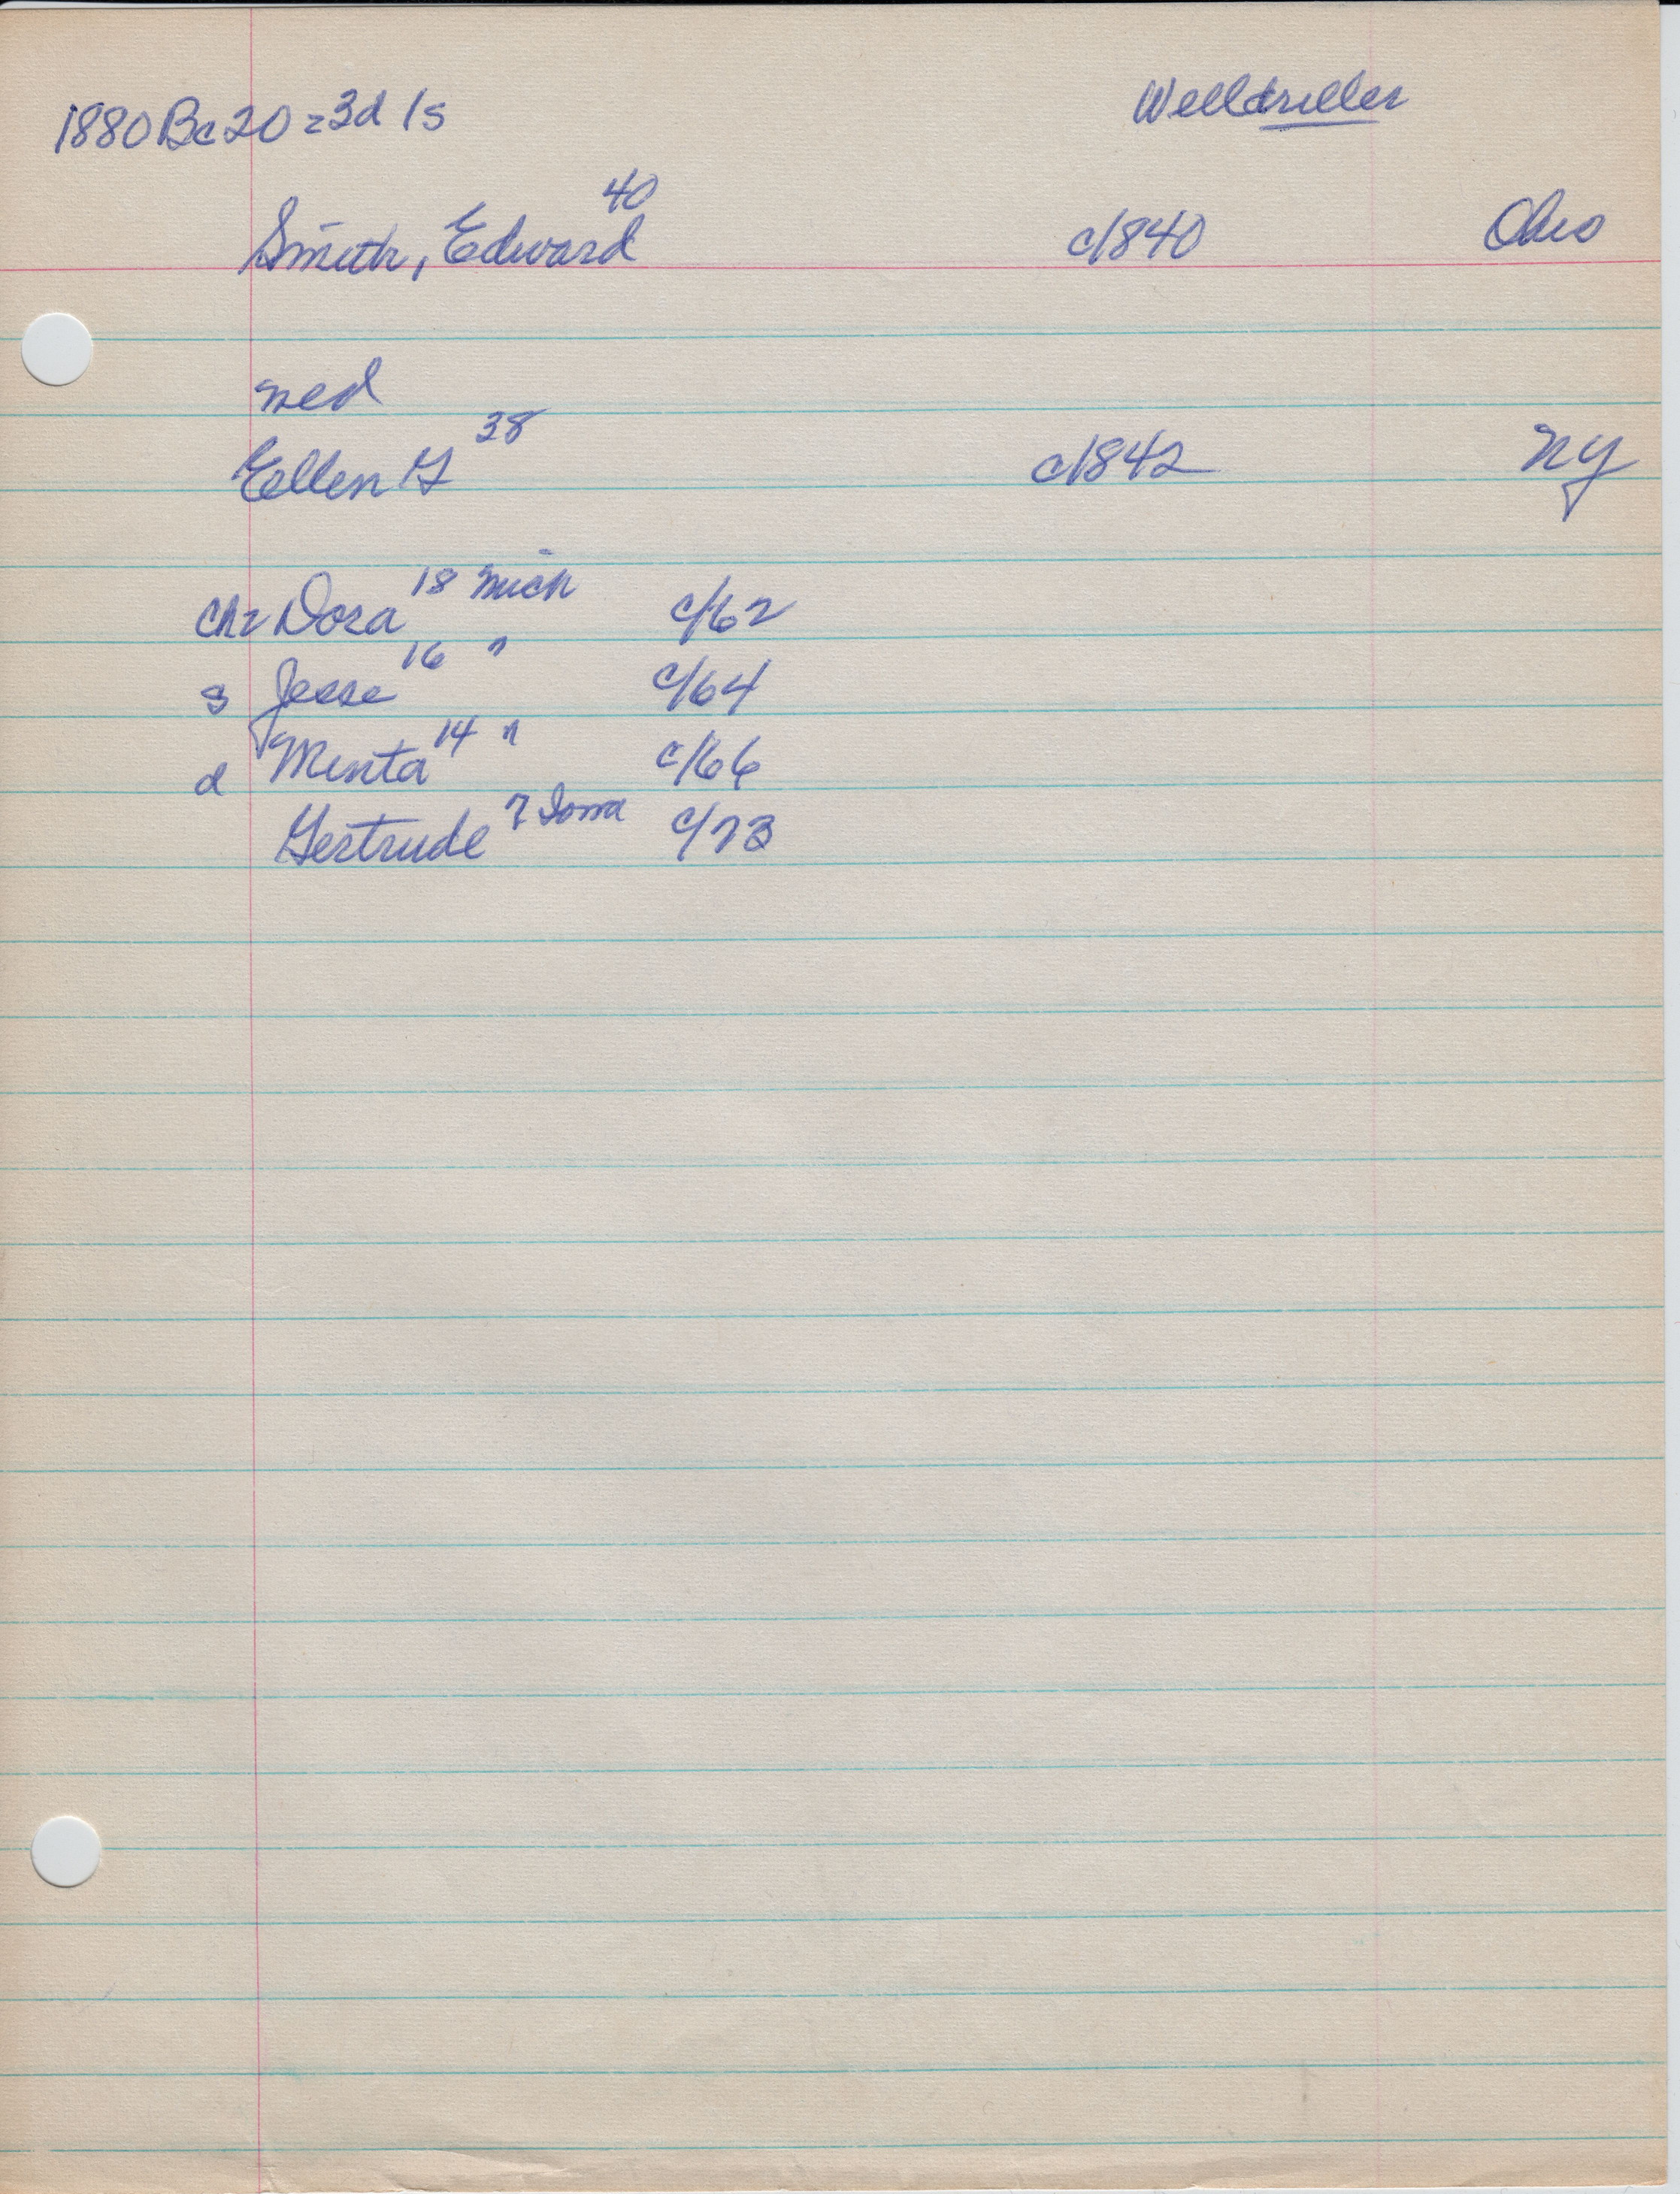 1880 Bc 20 = 3d 1s Welldriller
Smith, Edward 40 c/1840 Ohio
med
Ellen G 38 c/1842 NY
ch = Dora 18 Mich c/62
s Jesse 16 " c/64
d Minta 14 " c/66
Gertrude 7 Iowa c/73